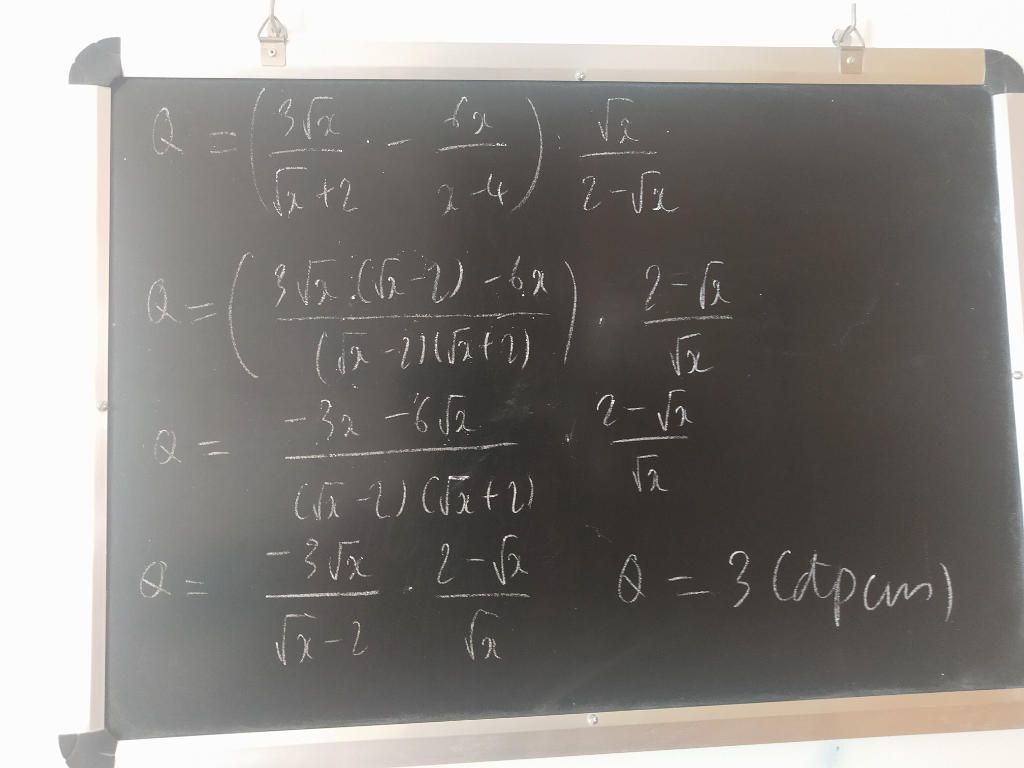 Q = (3√x / (√x+2) - 6x / (x-4)) : √x / (2-√x)
Q = (3√x.(√x-2) - 6x / (√x-2)(√x+2)) . (2-√x) / √x
Q = (-3x - 6√x) / (√x-2)(√x+2) . (2-√x) / √x
Q = -3√x / (√x-2) . (2-√x) / √x Q = 3 (đpcm)